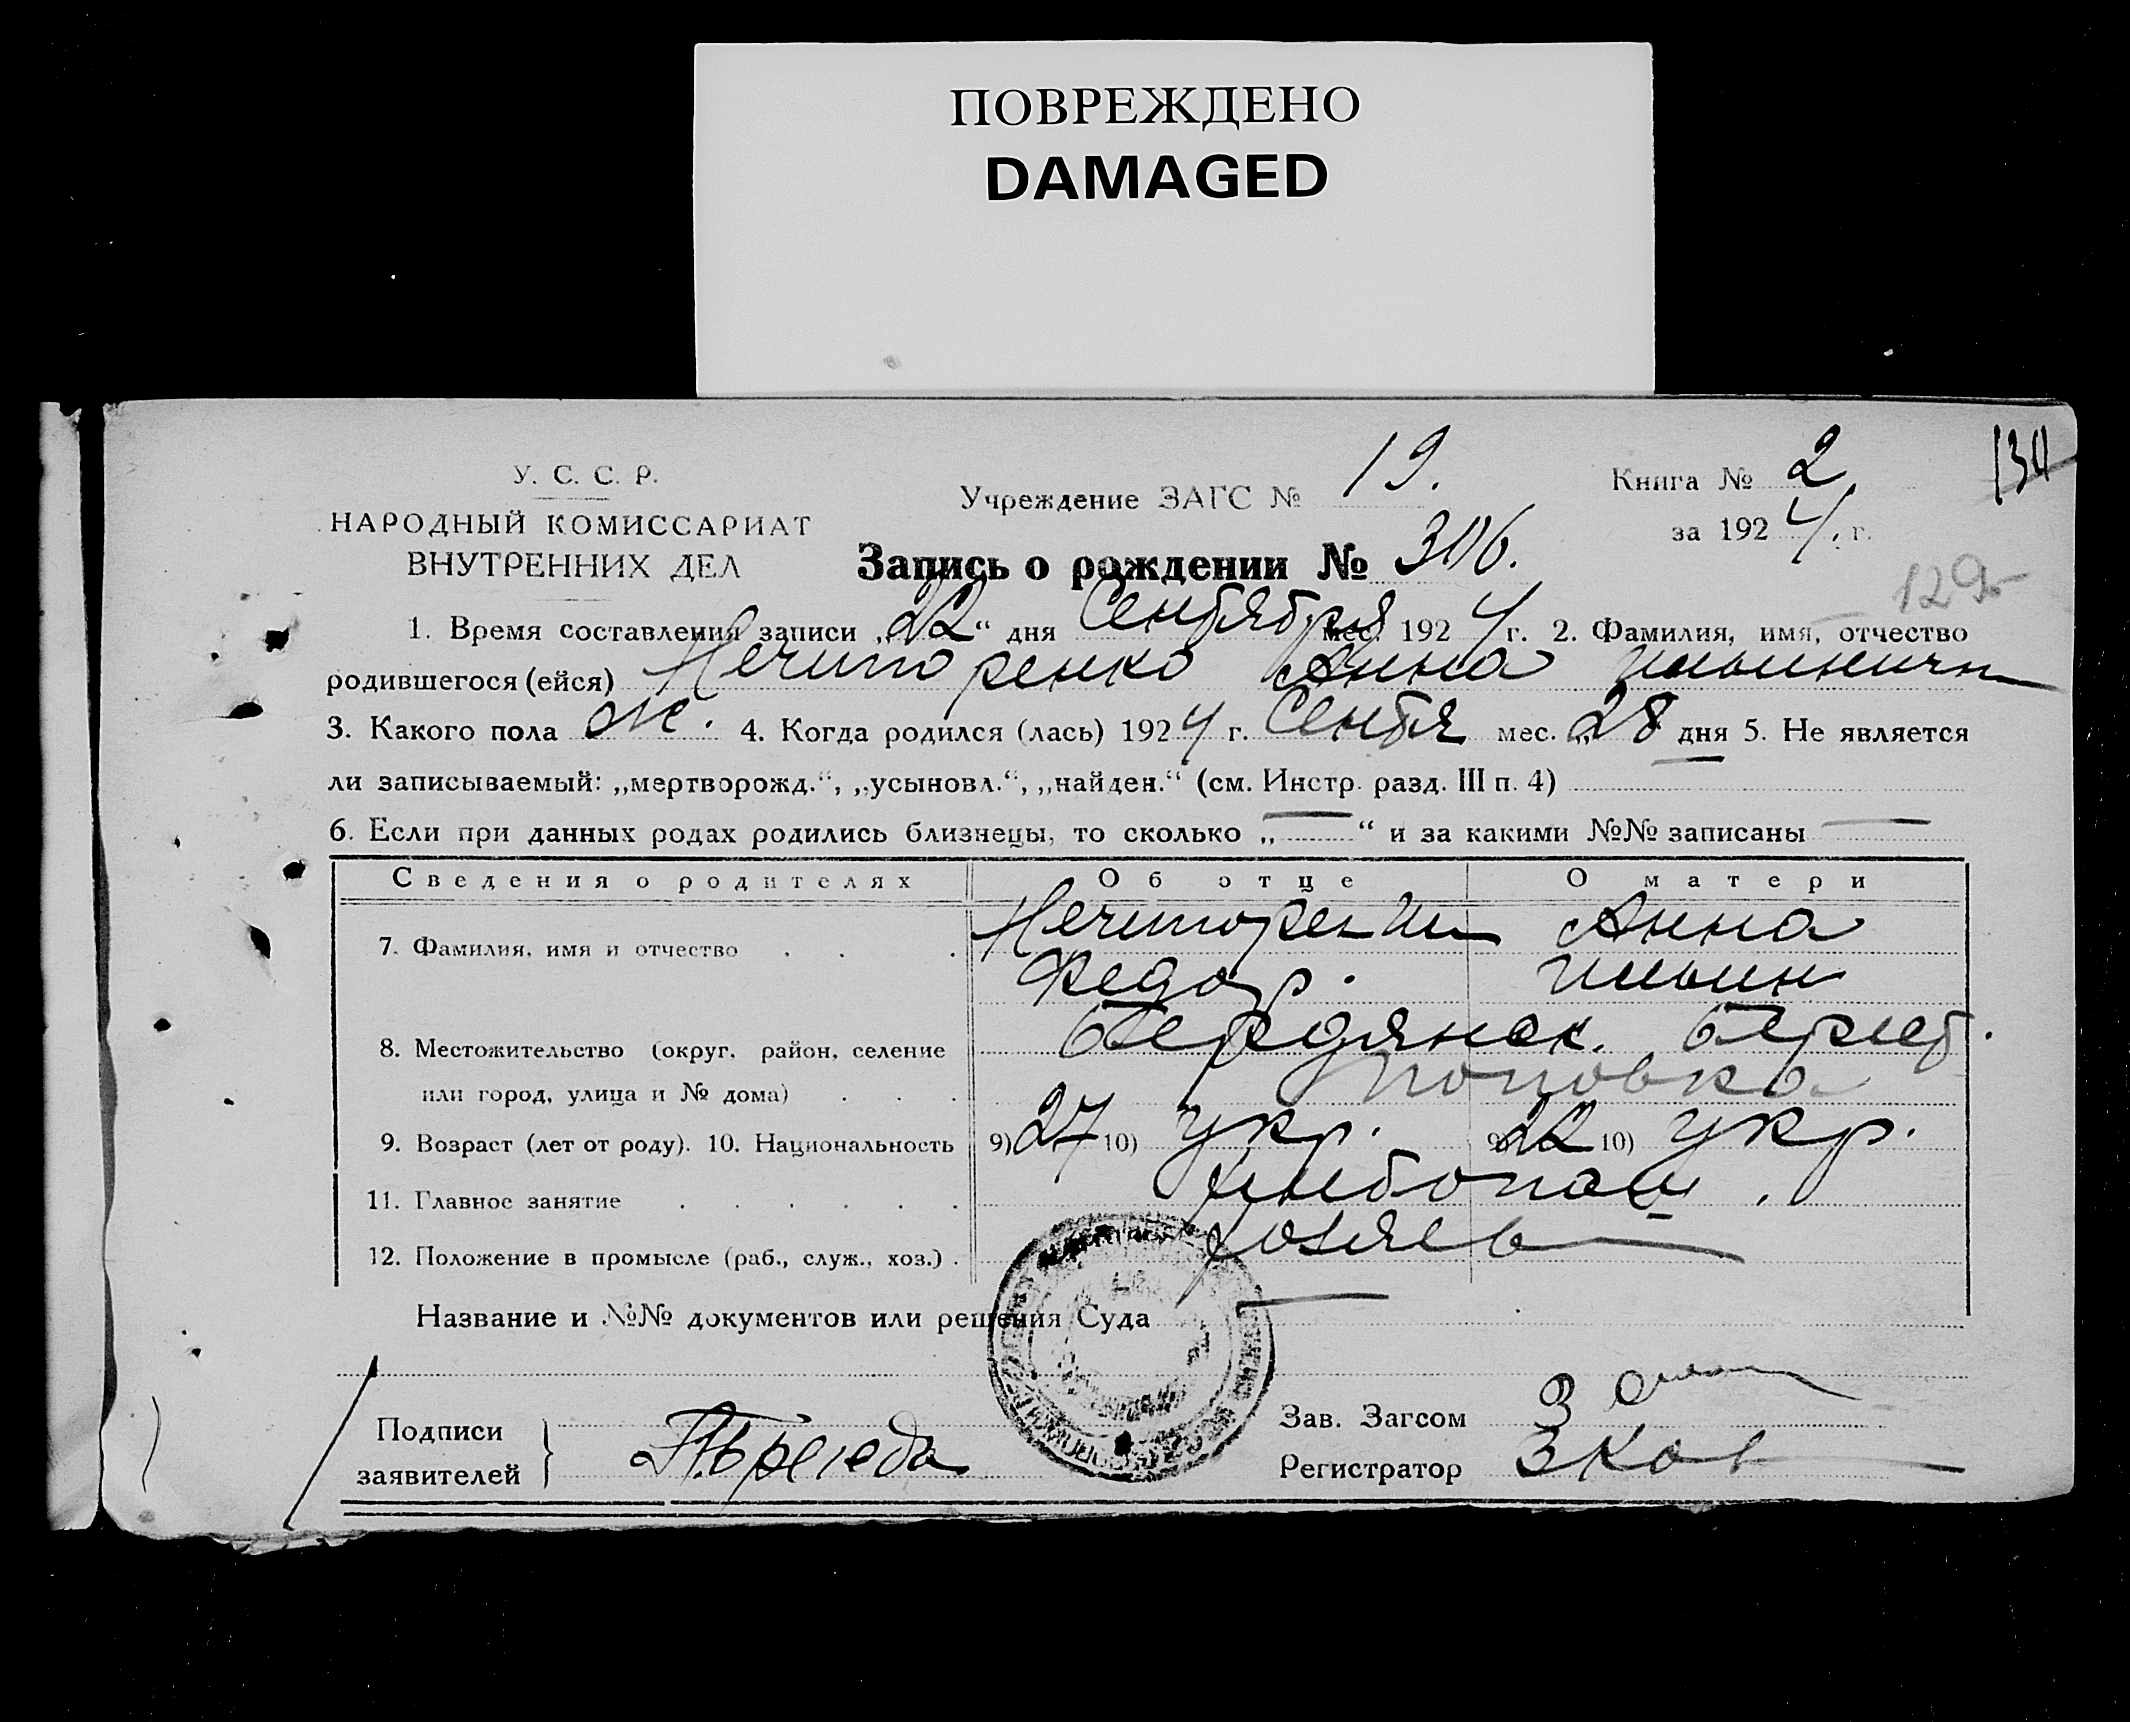 ПОВРЕЖДЕНО
DAMAGED
134
У. С. С. Р.
НАРОДНЫЙ КОМИССАРИАТ
ВНУТРЕННИХ ДЕЛ
Учреждение ЗАГС № 19.
Книга № 2
за 1924 г.
Запись о рождении № 306.
129
1. Время составления записи „22“ дня Сентября мес. 1924 г. 2. Фамилия, имя, отчество
родившегося (ейся) Нечипоренко Анна
3. Какого пола ж. 4. Когда родился (лась) 1924 г. Сентя мес. „28 дня 5. Не является
ли записываемый: „мертворожд.“, „усыновл.“, „найден.“ (см. Инстр. разд. III п. 4)
6. Если при данных родах родились близнецы, то сколько „—“ и за какими №№ записаны —
Сведения о родителях Об отце О матери
7. Фамилия, имя и отчество Анна
Федор.
8. Местожительство (округ, район, селение Бердянск.
или город, улица и № дома) Поповка
9. Возраст (лет от роду). 10. Национальность 9) 27 10) укр. 9) 22 10) укр.
11. Главное занятие хлебопаш.
12. Положение в промысле (раб., служ., хоз.) хозяев
Название и №№ документов или решения Суда —
Подписи
заявителей
Зав. Загсом
Регистратор